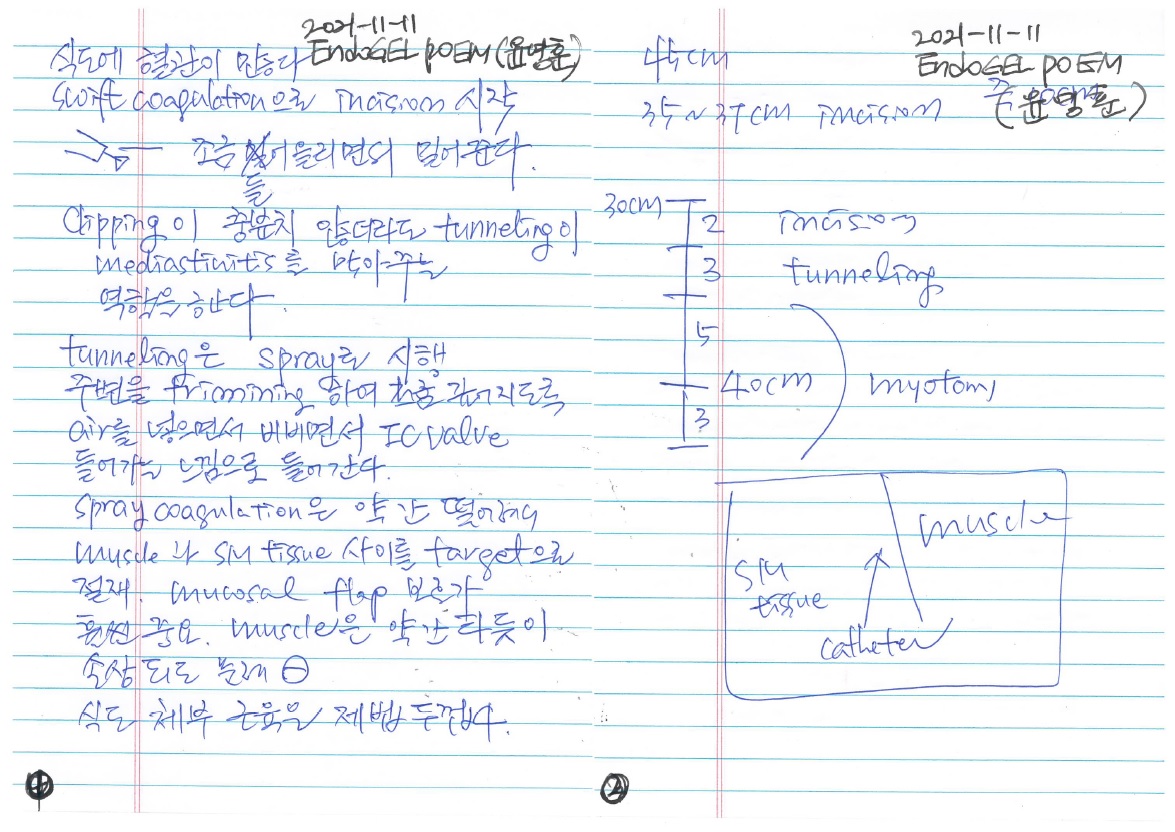 2021-11-11
EndoGEL POEM (윤영훈)
식도에 혈관이 많다
Swift coagulation으로 incision 시작
조금 들어올리면서 밀어준다.
Clipping이 충분치 않더라도 tunneling이
mediastinitis를 막아주는
역할을 한다.
tunneling은 spray로 시행
주변을 trimming 하여
air를 넣으면서 비비면서 IC valve
들어가는 느낌으로 들어간다.
spray coagulation은 약간 떨어져서
muscle과 SM tissue 사이를 target으로
절제. mucosal flap 보호가
훨씬 중요. muscle은 약간 타듯이
손상 되도 문제 ⊖
식도 체부 근육은 제법 두껍다.
1
2021-11-11
EndoGEL POEM
(윤영훈)
45cm
35~37cm incision
30cm
2 incision
3 tunneling
5
40cm myotomy
3
muscle
SM
tissue
catheter
2